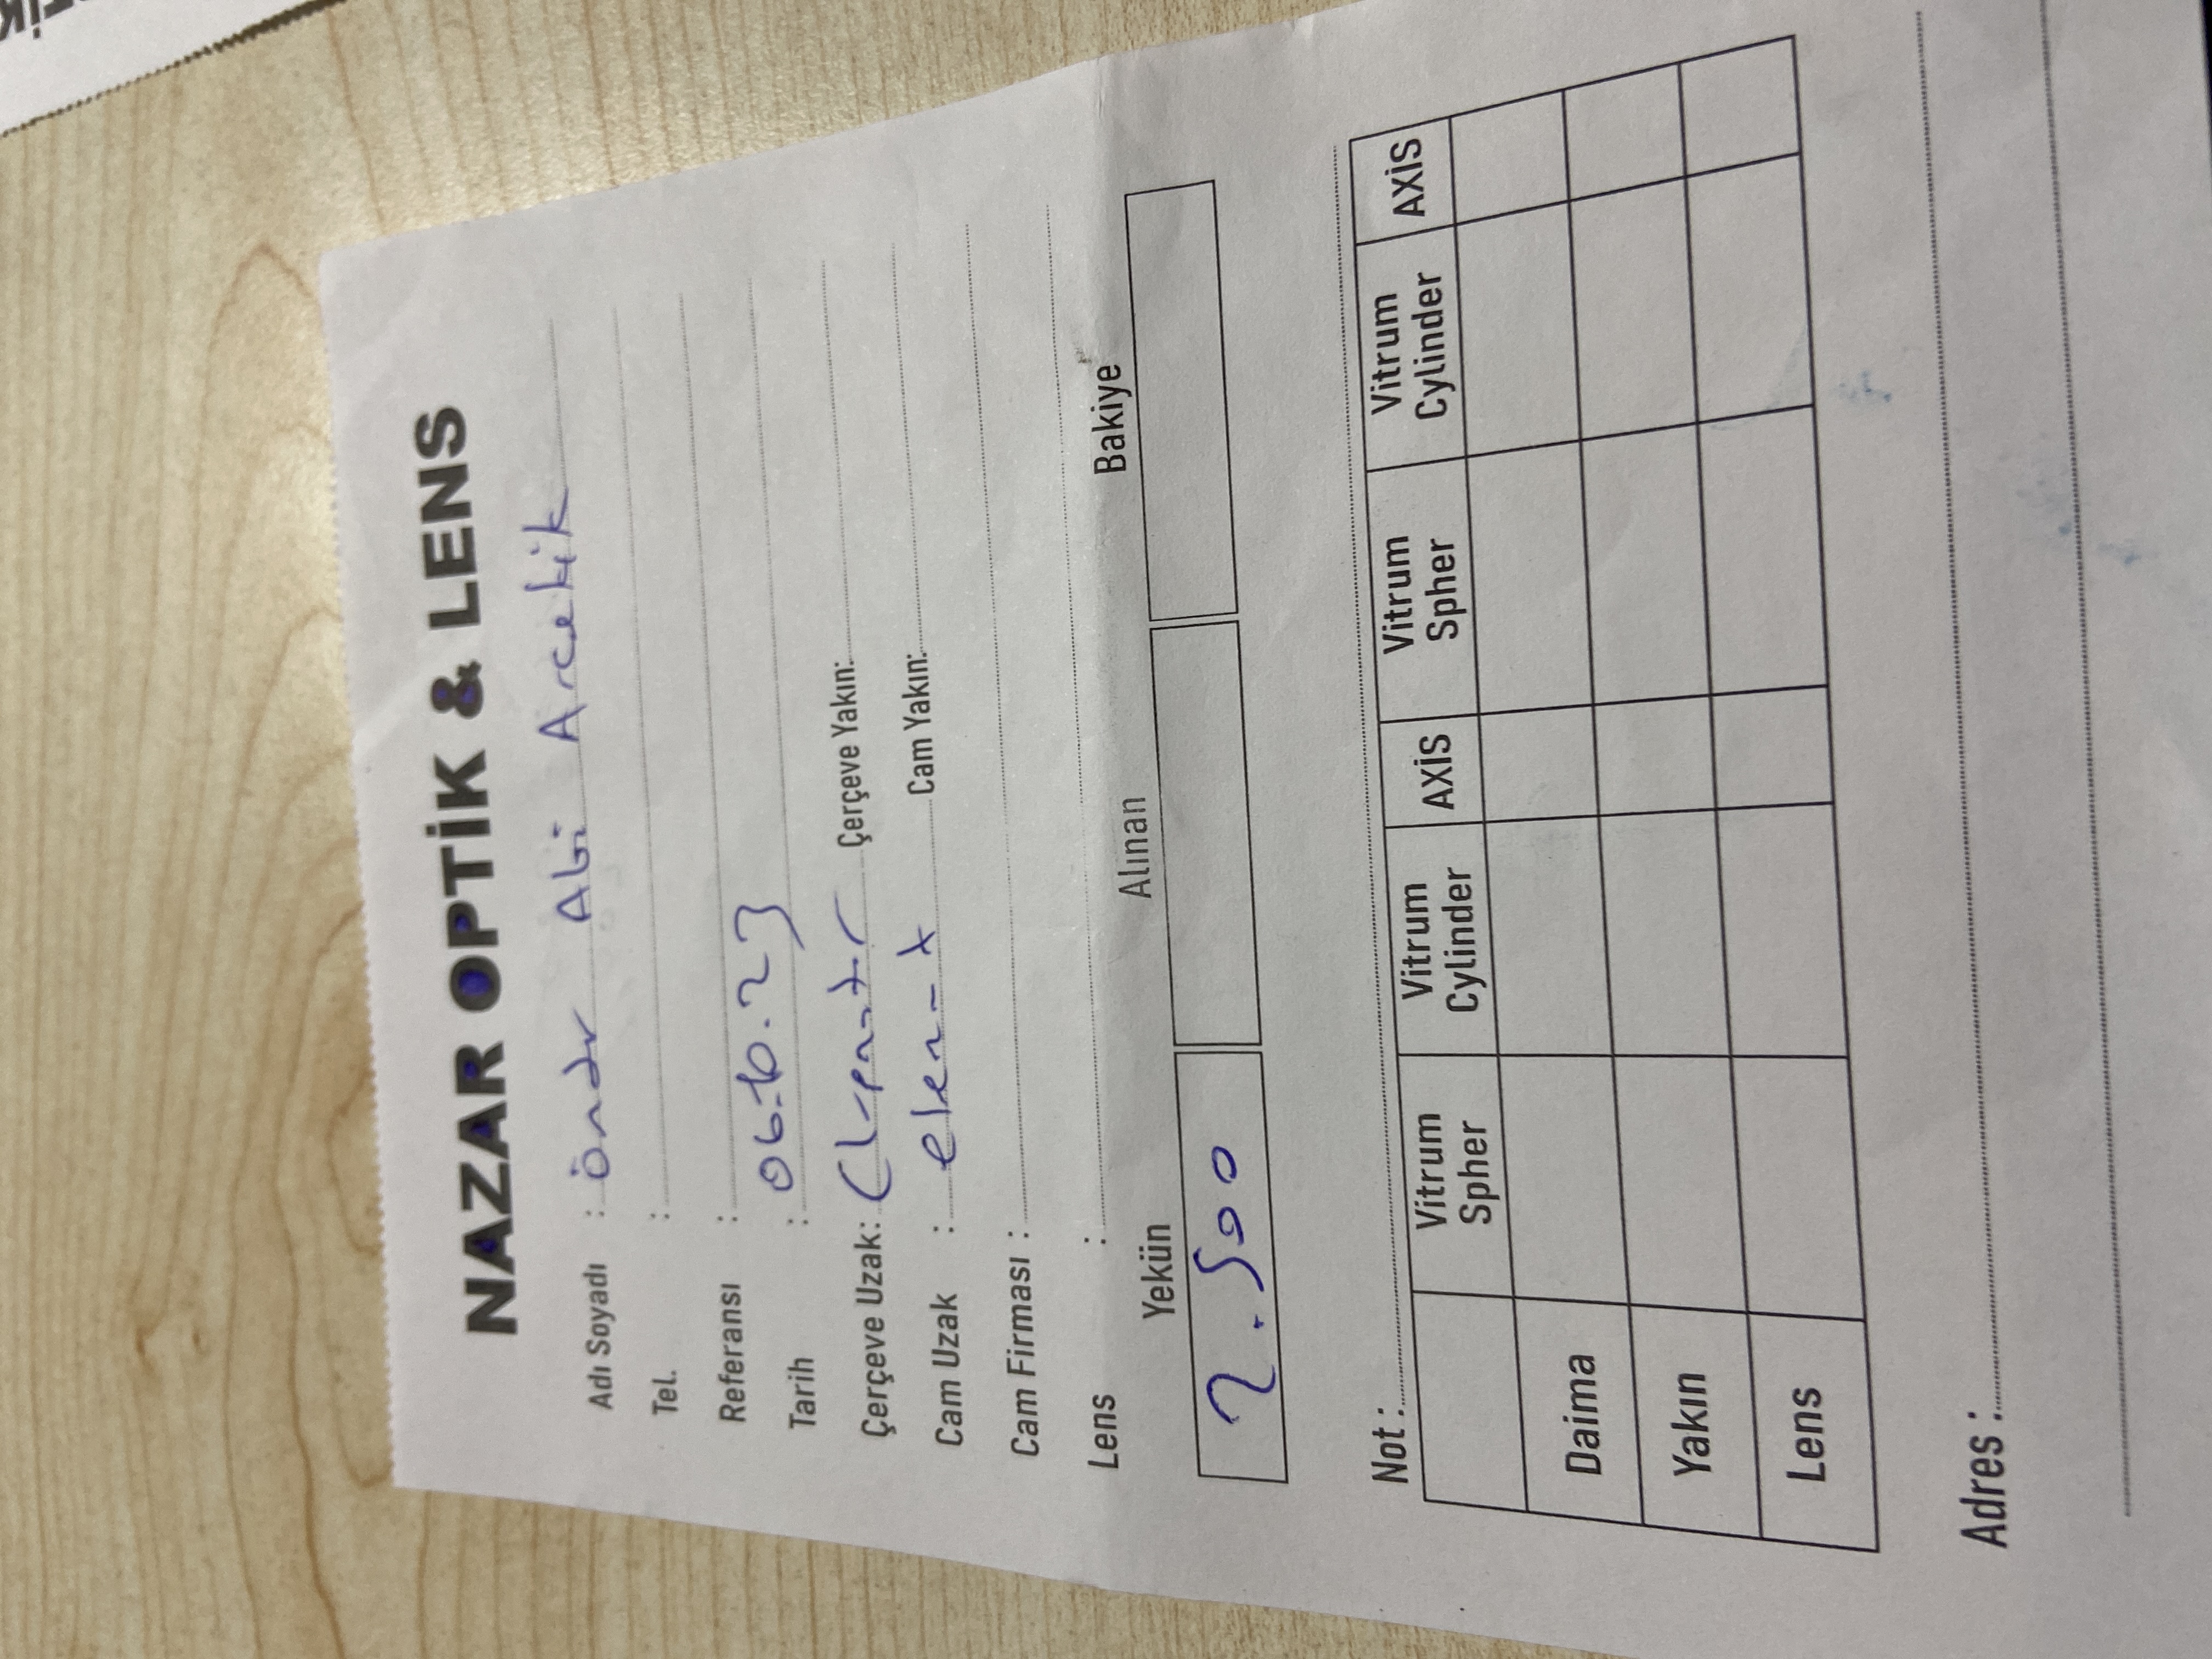 NAZAR OPTİK & LENS
Adı Soyadı : Önder Abi Arcelik
Tel. :
Referansı :
Tarih : 06.10.23
Çerçeve Uzak: Çerçeve Yakın:
Cam Uzak : Cam Yakın:
Cam Firması :
Lens :
Yekün Alınan Bakiye
2.500
Not :
Vitrum Spher Vitrum Cylinder AXİS Vitrum Spher Vitrum Cylinder AXİS
Daima
Yakın
Lens
Adres :